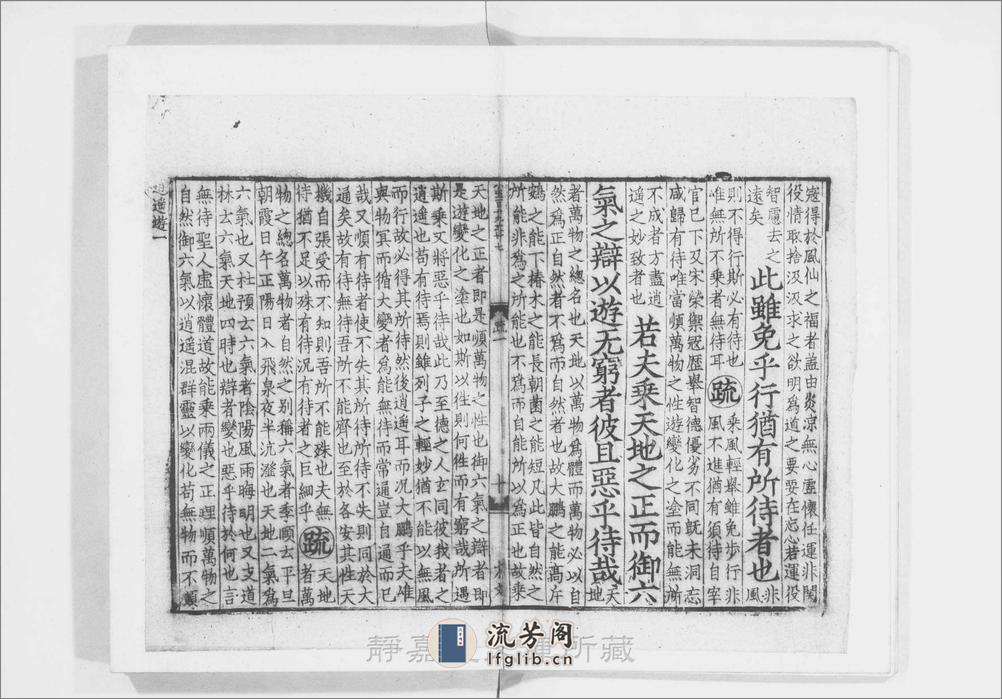 寇得於風仙之福者蓋由炎凉無心虛懷任運非関
役情取捨汲汲求之欲明爲道之要要在忘心若運役
智慮去之
遠矣
此雖免乎行猶有所待者也
非風
則不得行斯必有待也
唯無所不乘者無待耳
疏
乘風輕舉雖免步行非
風不進猶有須待自宰
官已下及宋榮禦冦歷舉智德優劣不同旣未洞忘
咸歸有待唯當順萬物之性遊變化之塗而能無所
不成者方盡逍
遥之妙致者也
若夫乘天地之正而御六
氣之辯以遊无窮者彼且惡乎待哉
天地
者萬物之總名也天地以萬物爲體而萬物必以自
然爲正自然者不爲而自然者也故大鵬之能髙斥
鷃之能下椿木之能長朝菌之能短凡此皆自然之
所能非爲之所能也不爲而自能所以爲正也故乘
天地之正者即是順萬物之性也御六氣之辯者即
是遊變化之塗也如斯以徃則何徃而有窮哉所遇
斯乘又將惡乎待哉此乃至德之人玄同彼我者之
逍遥也苟有待焉則雖列子之輕妙猶不能以無風
而行故必得其所待然後逍遥耳而况大鵬乎夫唯
與物冥而循大變者爲能無待而常通豈自通而已
哉又順有待者使不失其所待所待不失則同於大
通矣故有待無待吾所不能齊也至於各安其性天
機自張受而不知則吾所不能殊也夫無
待猶不足以殊有待况有待者之巨細乎
疏
天地
者萬
物之總名萬物者自然之别稱六氣者李頤云平旦
朝霞日午正陽日入飛泉夜半沆瀣也天地二氣爲
六氣也又杜預云六氣者陰陽風雨晦明也又支道
林云六氣天地四時也辯者變也惡乎待於何也言
無待聖人虛懷體道故能乘兩儀之正理順萬物之
自然御六氣以逍遥混群靈以變化苟無物而不順
逍遥遊一
流芳阁
lfglib.cn
靜嘉
所藏